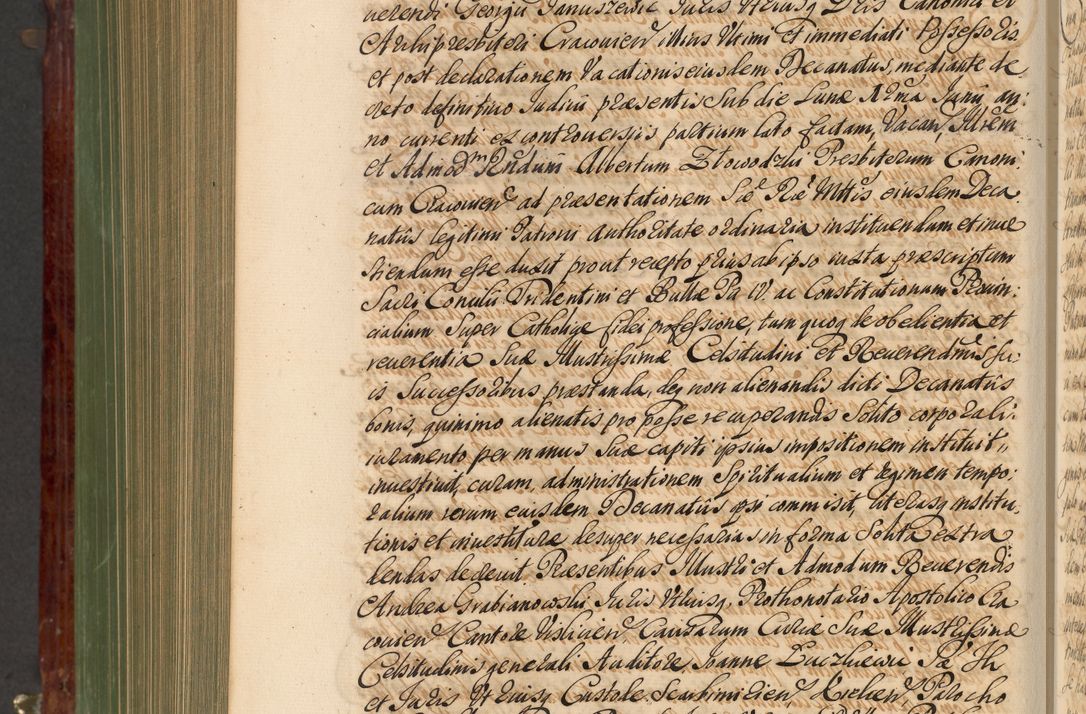 uerendi Georgii Januszewic Juris Utriusq Dris Canonici et
Archipresbiteri Cracouien illius Ultimi et immediati Possessoris
et post declarationem Vacationis eiusdem Decanatus, mediante de
creto definitiuo Iudicii praesentis Sub die Lunae Junii, an:
no currenti ex controuersiis partium lato factam, Vacan, Illrem
et Admodm Rndum Albertum Presbiterum Canoni
cum Cracouien ad praesentationem Sae Rae Mttis eiusdem Deca
natûs legitimi Patroni authoritate ordinaria instituendum et inue
stiendum esse duxit prout recepto prius ab ipso iuxta praescriptum
Sacri Concilii Tridentini et Bullae Pa IV. ac Constitutionum Prouin:
cialium Super Catholicae fidei professione, tum quoq de obedientia et
reuerentia Suae Illustrissimae Celsitudini et Reuerendmis su:
is Successoribus praestanda, deq non alienandis dicti Decanatûs
bonis, quinimo alienatis pro posse recuperandis Solito corporali
iuramento per manus Suae capiti ipsius impositionem instituit,
inuestiuit, curam, administrationem Spiritualium et regimen tempo:
ralium rerum eiusdem Decanatûs ipsi commisit, literasq institu
tionis et inuestiturae desuper necessarias in forma Solita extra
dendas decreuit. Praesentibus Illustri et Admodum Reuerendis
Andrea Grabianowski Juris Utriusq, Prothonotario Apostolico Cra
couien Cantore Vislicien Causarum Curiae Suae Illustrissimae
Celsitudinis generali Auditore, Joanne Pa Th
et Juris Utriusq Custode Kielcen,